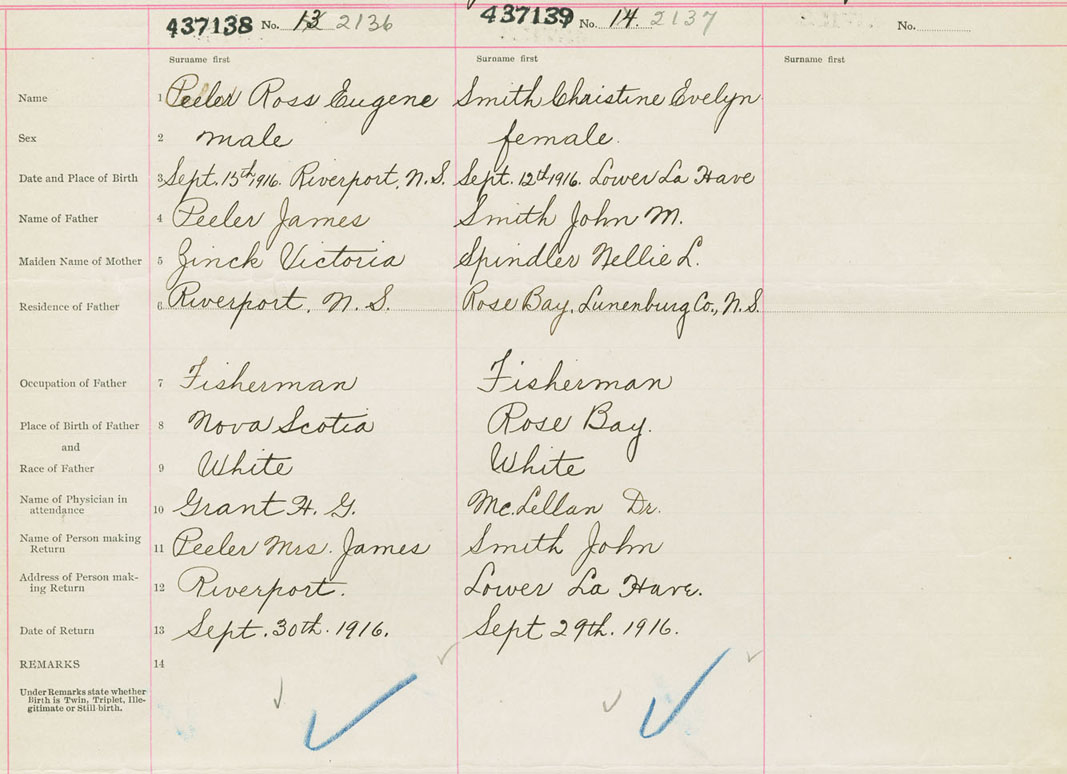 437138 No. 13 2136 437139 No. 14. 2137 No.
Surname first Surname first Surname first
Name 1 Peeler Ross Eugene Smith Christine Evelyn
Sex 2 male female.
Date and Place of Birth 3 Sept. 15th 1916. Riverport, N.S. Sept. 12th 1916. Lower La Have
Name of Father 4 Peeler James Smith John M.
Maiden Name of Mother 5 Zinck Victoria Spindler Nellie L.
Residence of Father 6 Riverport, N.S. Rose Bay, Lunenburg Co., N.S.
Occupation of Father 7 Fisherman Fisherman
Place of Birth of Father 8 Nova Scotia Rose Bay.
and
Race of Father 9 White White
Name of Physician in
attendance 10 Grant H. G. Mc.Lellan Dr.
Name of Person making
Return 11 Peeler Mrs. James Smith John
Address of Person mak-
ing Return 12 Riverport. Lower La Have.
Date of Return 13 Sept. 30th. 1916. Sept 29th. 1916.
REMARKS 14
Under Remarks state whether
Birth is Twin, Triplet, Ille-
gitimate or Still-birth.